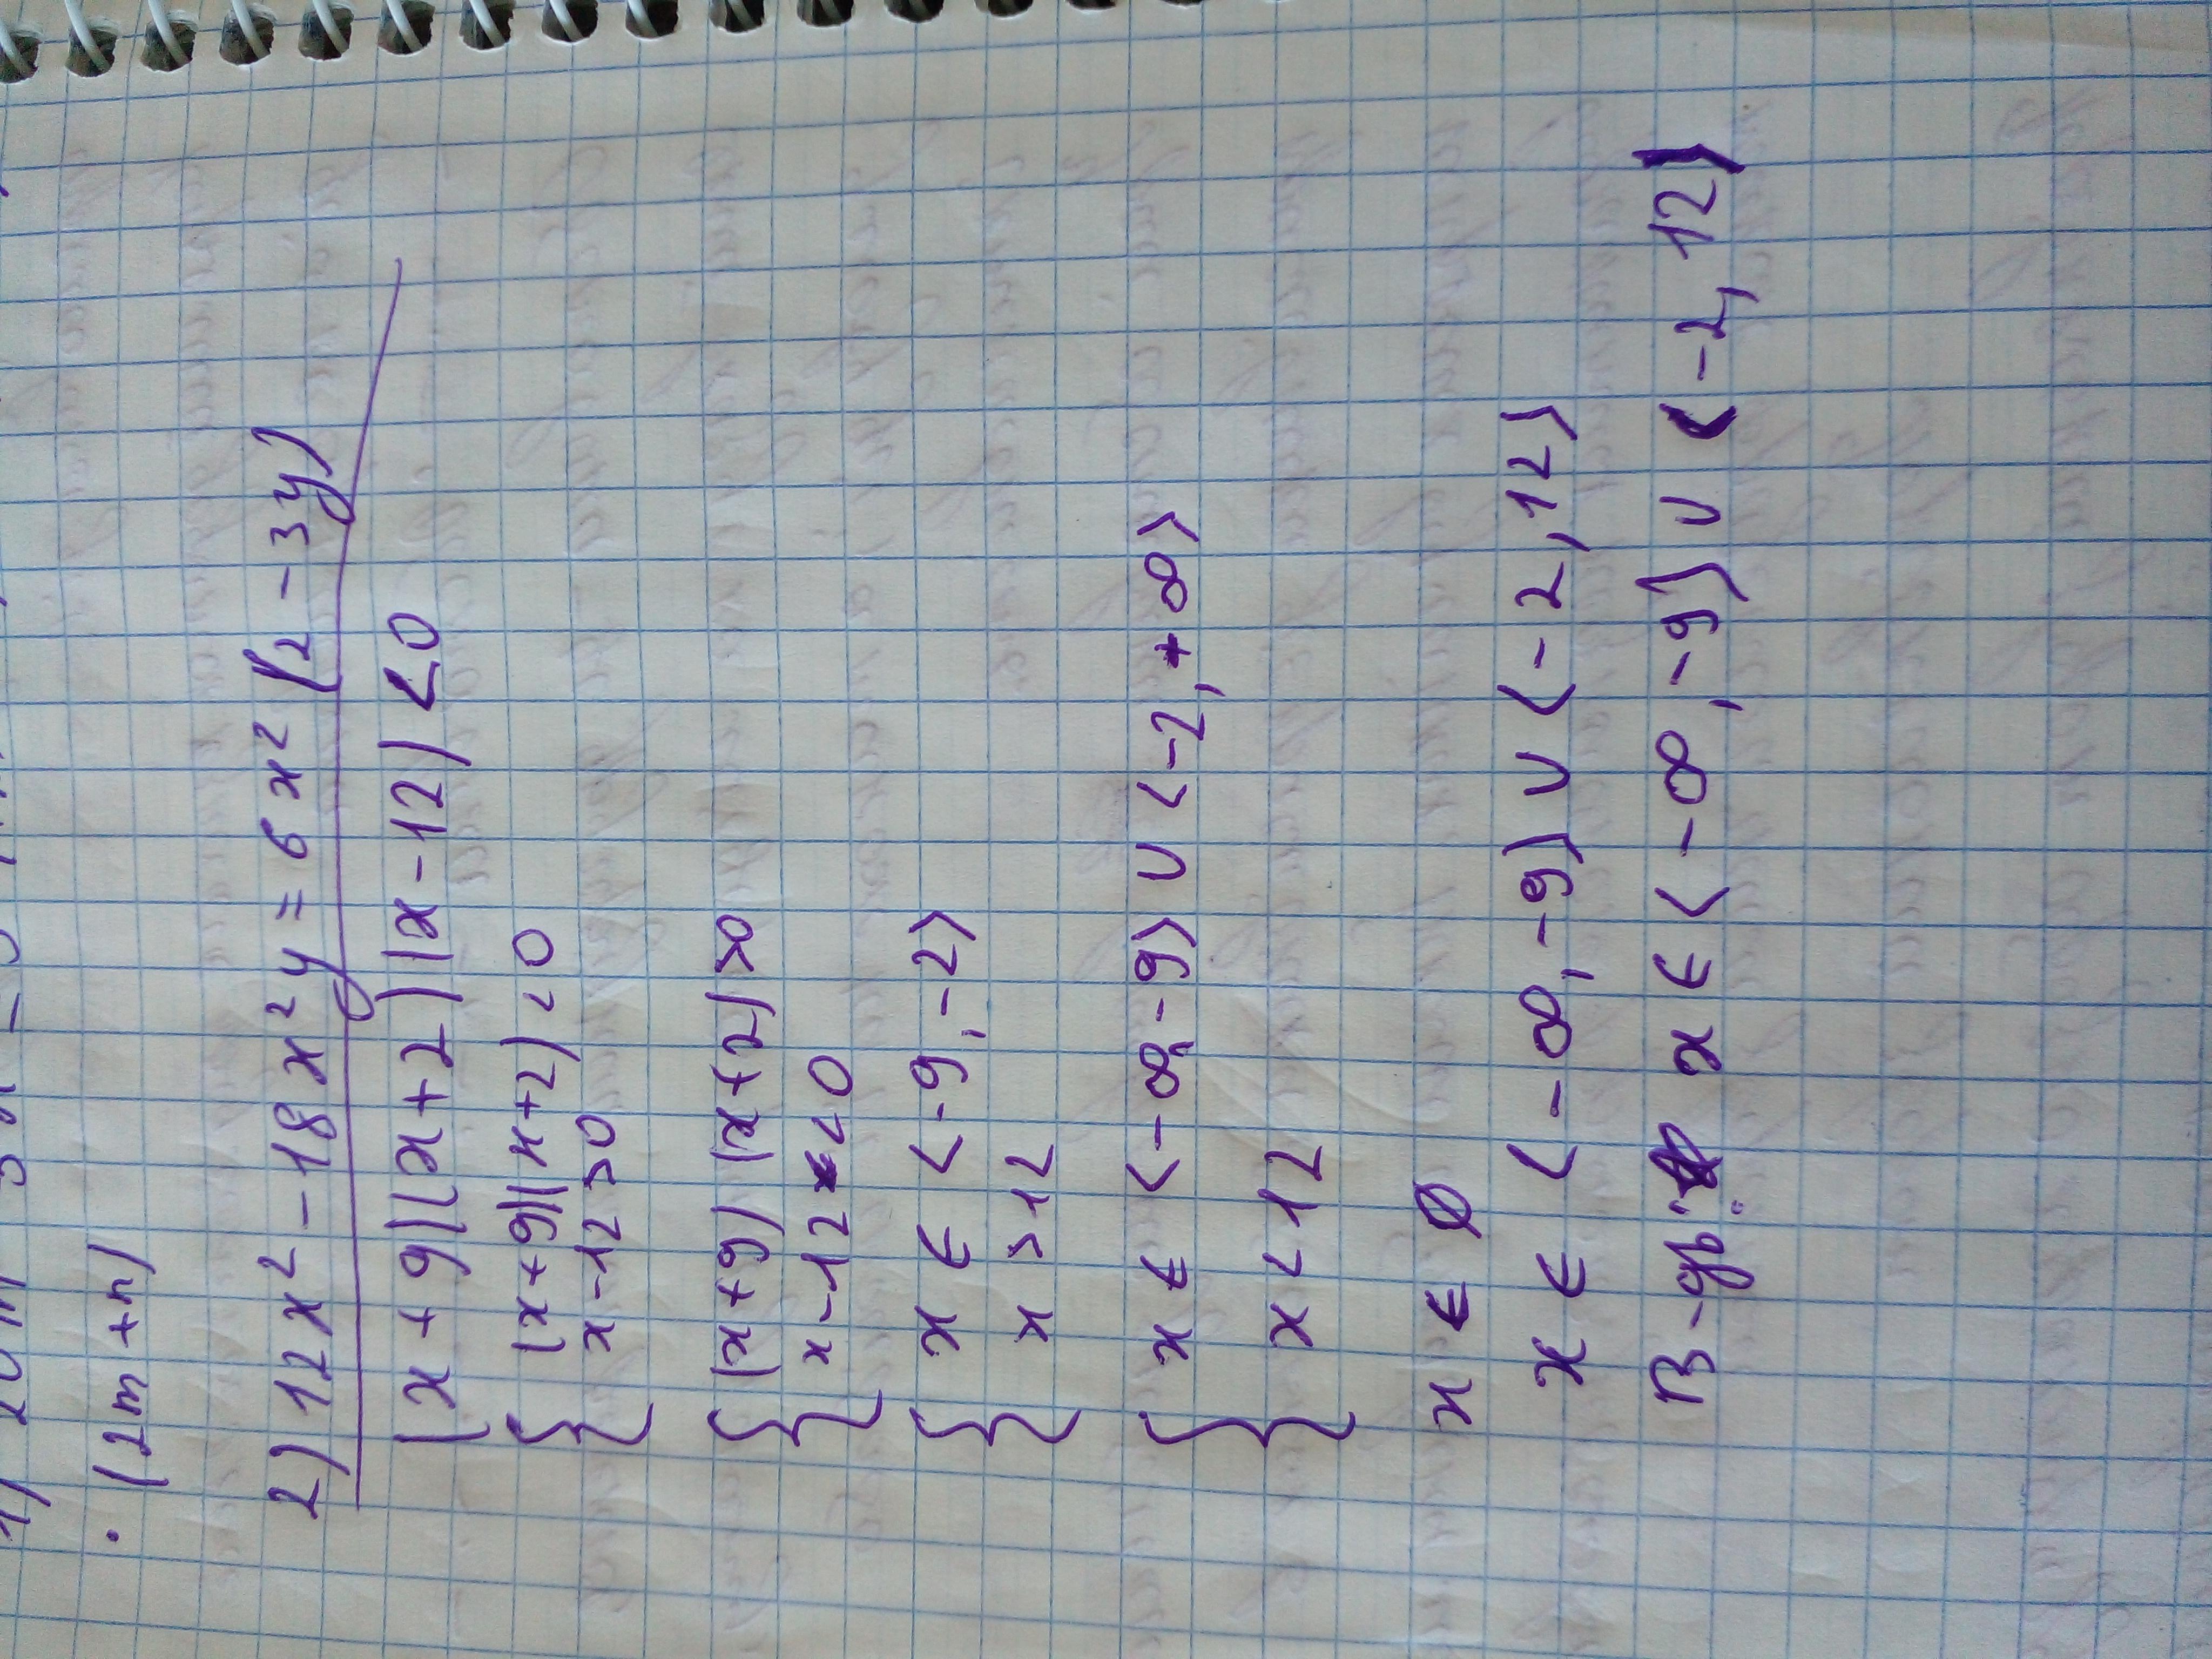 · (2m + n)
2) 12x² - 18x²y = 6x² (2 - 3y)
(x + 9)(x + 2)(x - 12) < 0
{ (x + 9)(x + 2) < 0
x - 12 > 0
{ (x + 9)(x + 2) > 0
x - 12 < 0
{ x ∈ < -9, -2 >
x > 12
{ x ∈ < -∞, -9 > ∪ < -2, +∞ >
x < 12
x ∈ ∅
x ∈ < -∞, -9 ) ∪ < -2, 12 >
В-дь: x ∈ < -∞, -9 ) ∪ < -2, 12 )